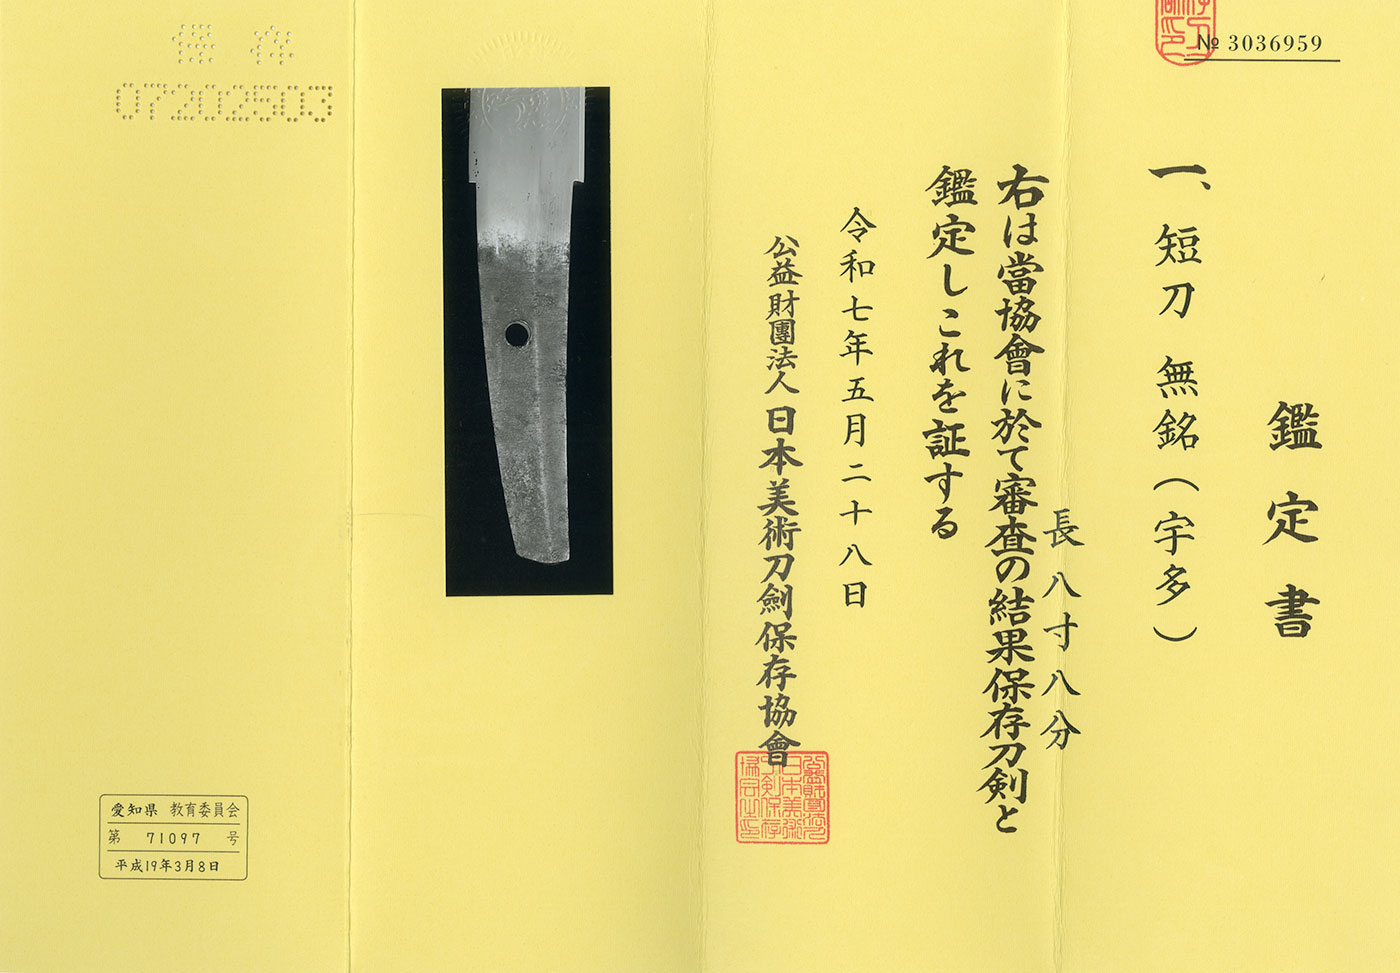 № 3036959
鑑定書
一、短刀 無銘(宇多)
長八寸八分
右は當協會に於て審査の結果保存刀剣と
鑑定しこれを証する
令和七年五月二十八日
公益財團法人 日本美術刀劍保存協會
保存
07202503
愛知県 教育委員会
第 71097 号
平成19年3月8日